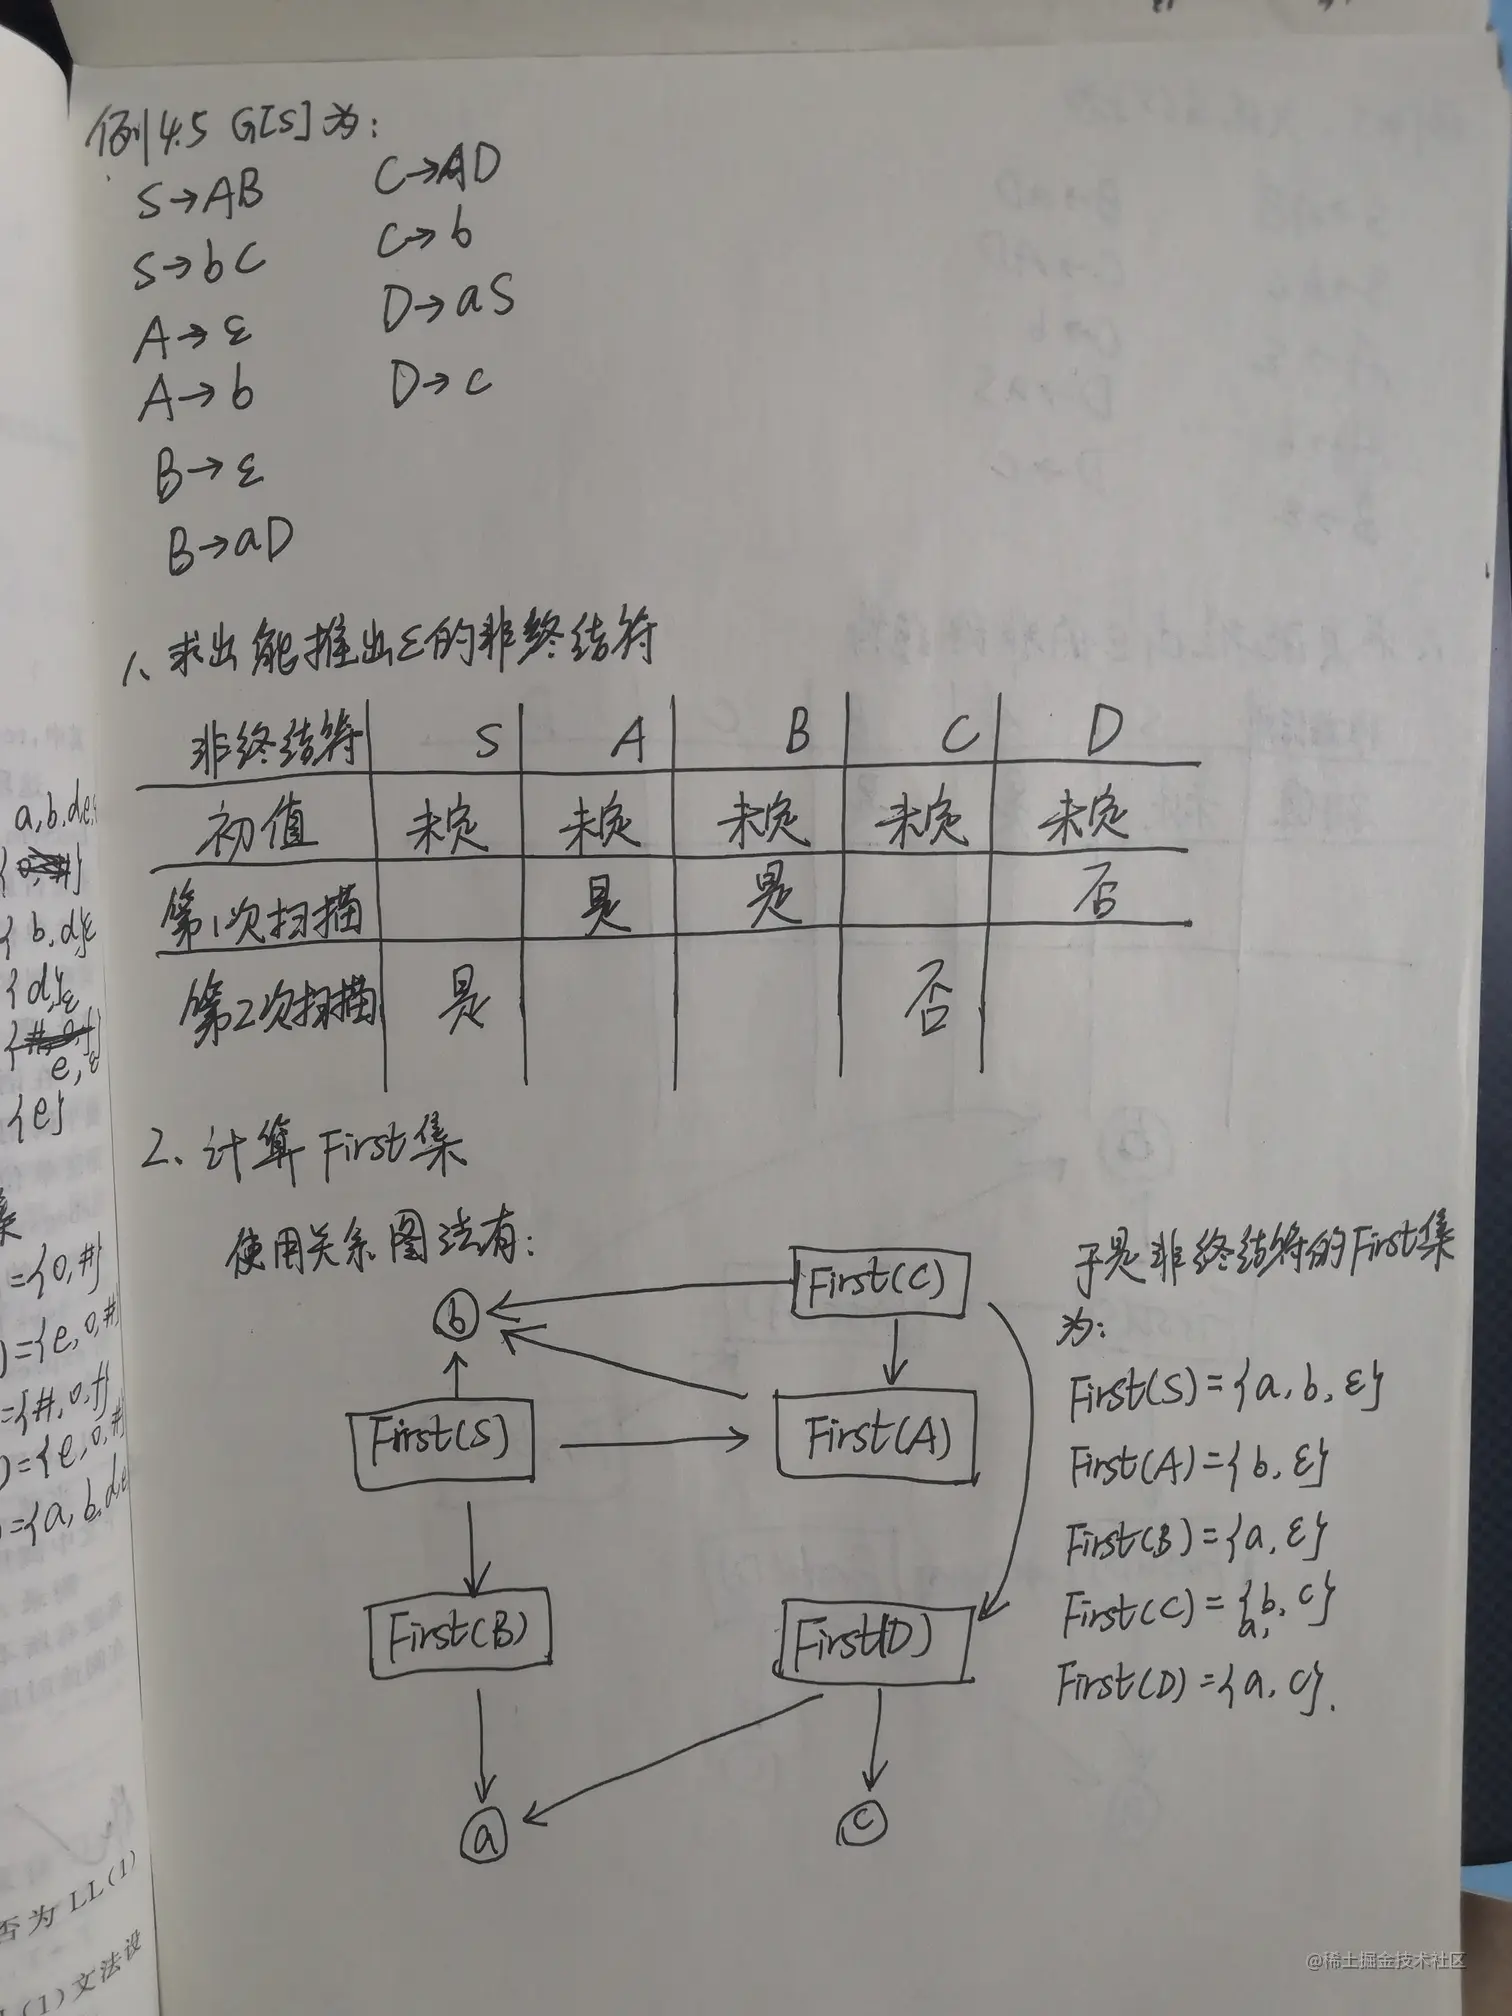 例4.5 G[S]为:
S→AB C→AD
S→bC C→b
A→ε D→aS
A→b D→c
B→ε
B→aD
1、求出能推出ε的非终结符
非终结符 S A B C D
初值 未定 未定 未定 未定 未定
第1次扫描 是 是 否
第2次扫描 是 否
2、计算First集
使用关系图法有:
b
First(C)
First(S)
First(A)
First(B)
First(D)
a
c
于是非终结符的First集
为:
First(S)={a,b,ε}
First(A)={b,ε}
First(B)={a,ε}
First(C)={a,b,c}
First(D)={a,c}.
a,b,d,e,
{b,d,ε
{d},ε
e,ε
{e}
集
={0,#}
)={e,0,#
={#,0,f}
)={e,0,#
={a,b,d,e
否为LL(1)
(1)文法设
@稀土掘金技术社区